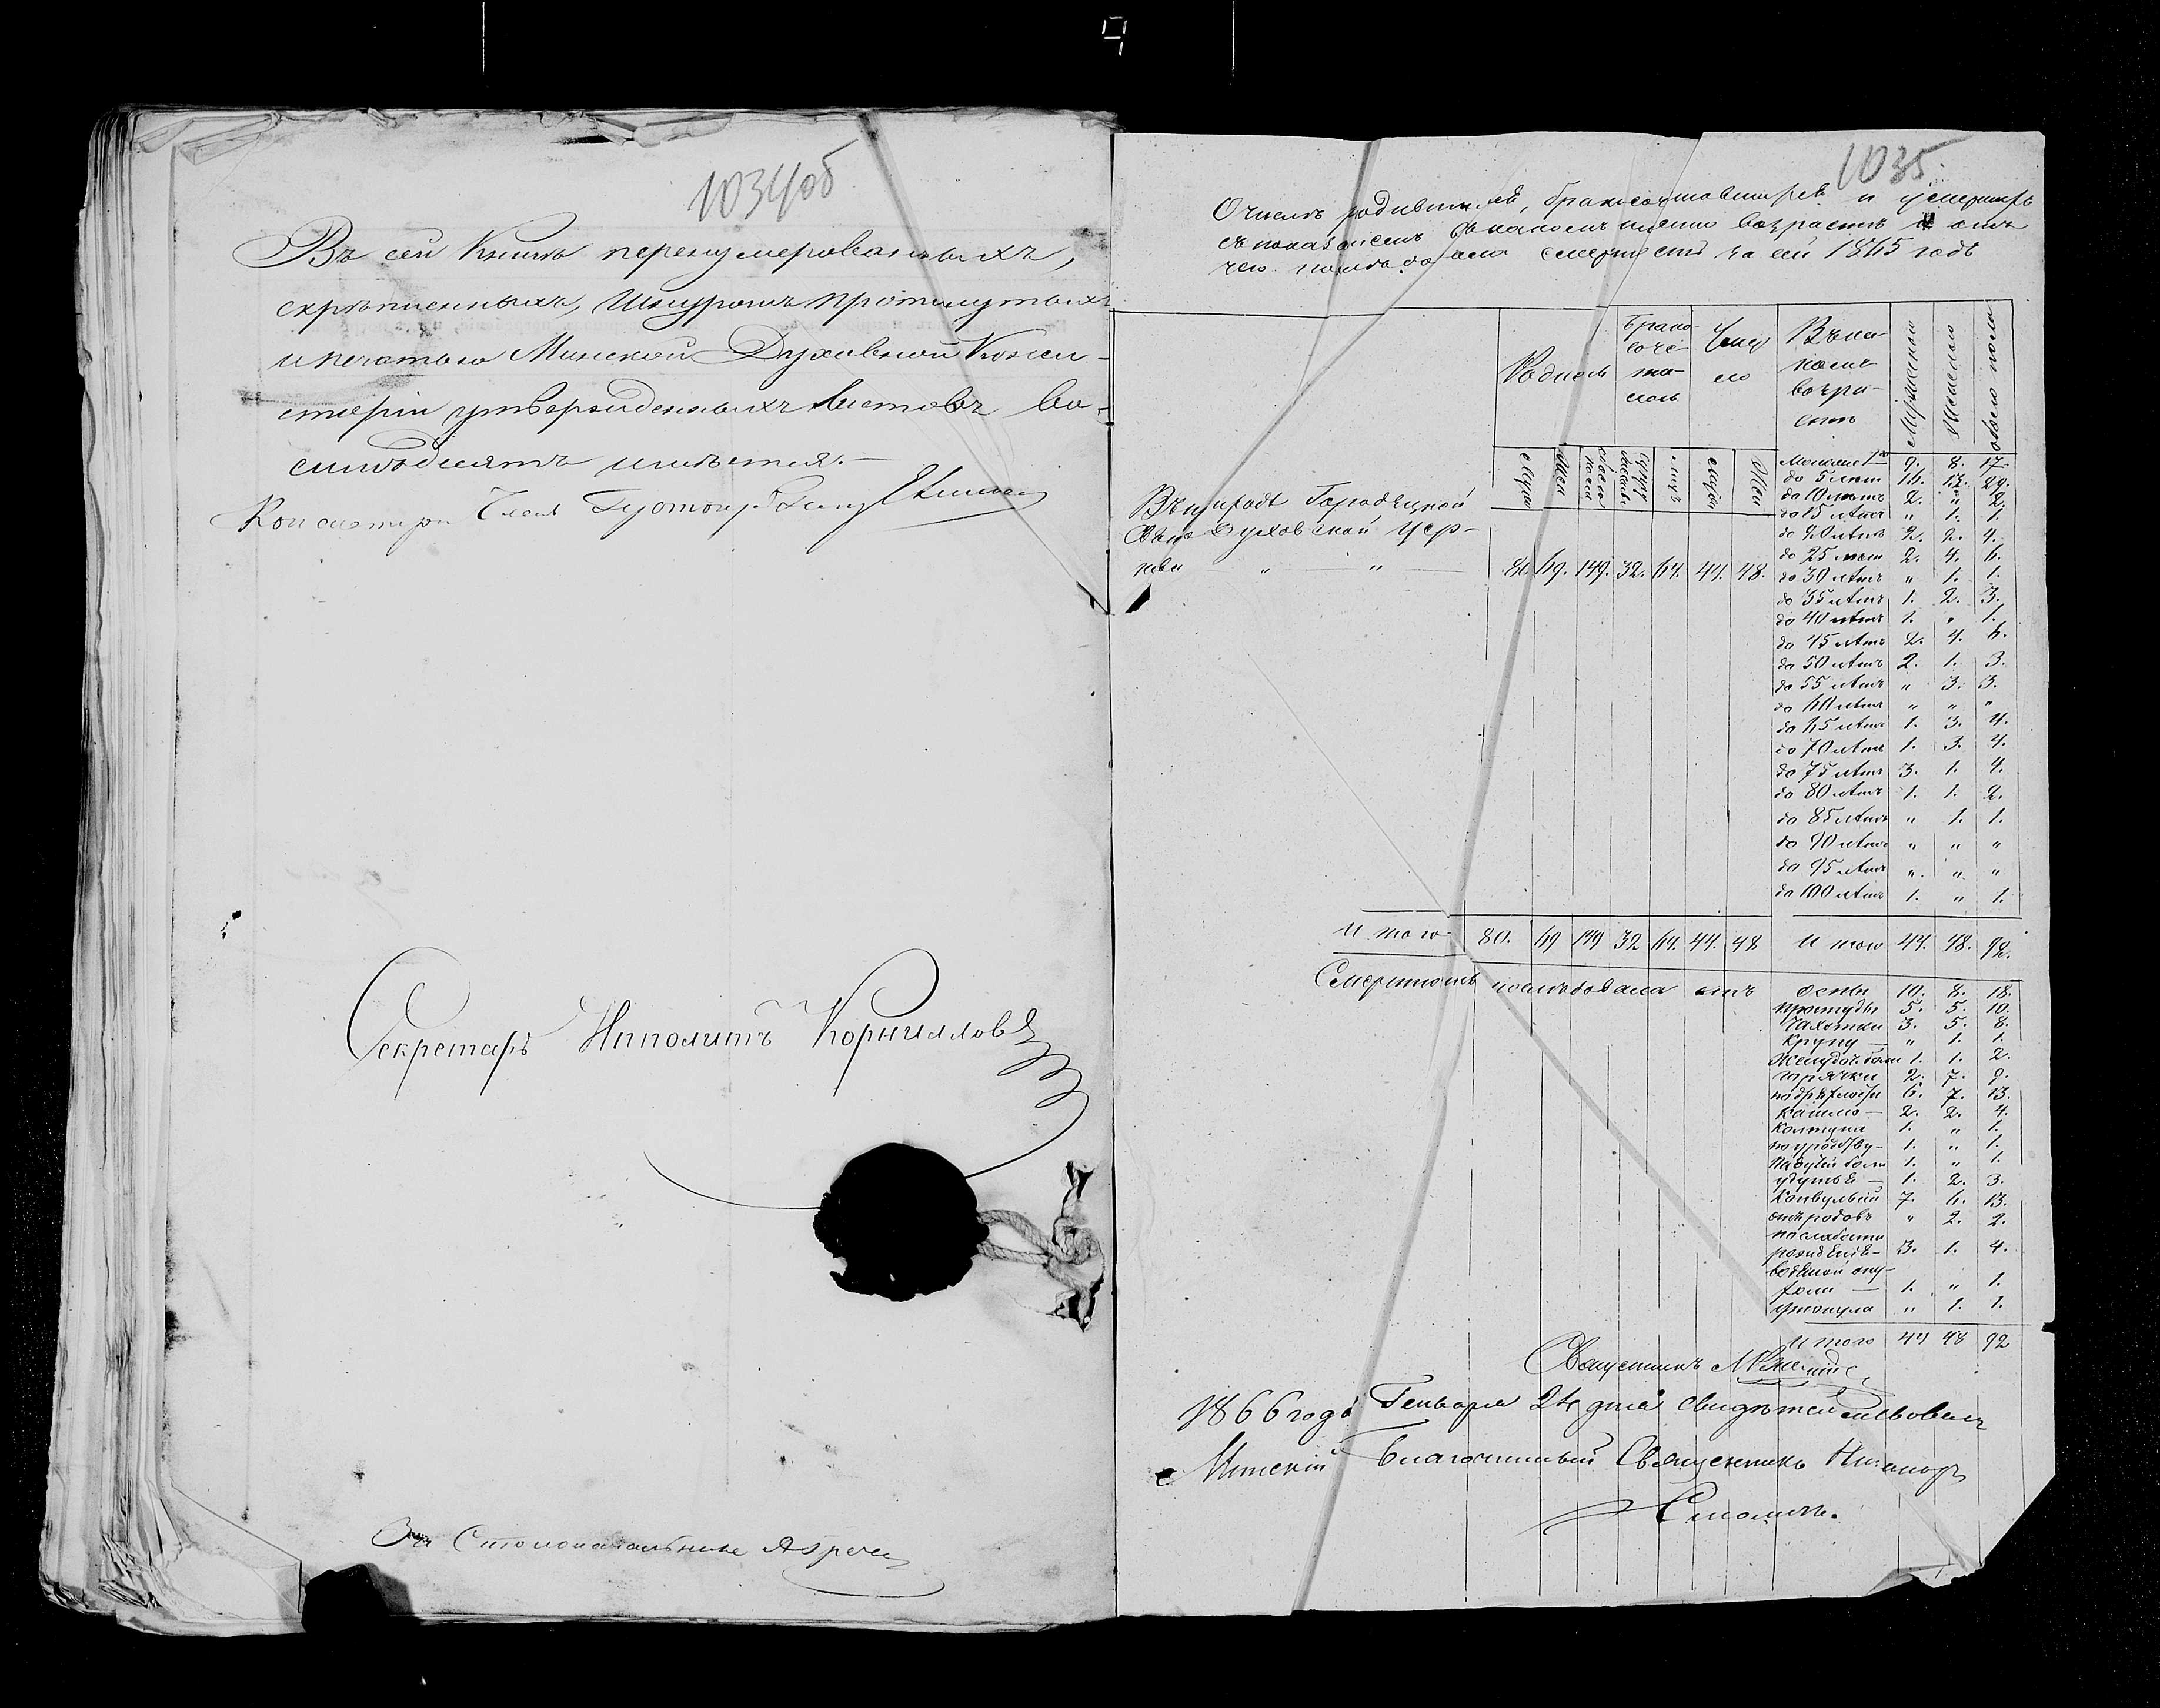 1034об
Въ сей Книгѣ перенумерованныхъ,
скрѣпленныхъ, шнуромъ протянутыхъ
и печатью Минской Духовной Конси-
сторіи утвержденныхъ листовъ во-
семьдесятъ имѣется.—
Консисторіи Членъ
Секретарь Ипполитъ Корниллов
За Столоначальника
1035
О числѣ родившихся, бракосочтавшихся и умершихъ
съ показаніемъ въ какомъ именно возрастѣ и отъ
чего послѣдовала смерть за сей 1865 годъ
Родилось
Брако-
соче-
та-
лось
Умер
ло
Въ ка-
комъ
возра-
стѣ
Мужескаго
Женскаго
обоего пола
Муж
Жен
обоего пола
лицъ
Муж
Жен
Въ приходѣ Городецкой
Свято Духовской Цер-
кви " — " — 80. 69. 149. 32. 64. 44. 48.
Моложе 1го 9. 8. 17.
до 5 лѣтъ 16. 13. 29.
до 10 лѣтъ 2. " 2.
до 15 лѣтъ " 1. 1.
до 20 лѣтъ 2. 2. 4.
до 25 лѣтъ 2. 4. 6.
до 30 лѣтъ " 1. 1.
до 35 лѣтъ 1. 2. 3.
до 40 лѣтъ 1. " 1.
до 45 лѣтъ 2. 4. 6.
до 50 лѣтъ 2. 1. 3.
до 55 лѣтъ " 3. 3.
до 60 лѣтъ " " "
до 65 лѣтъ 1. 3. 4.
до 70 лѣтъ 1. 3. 4.
до 75 лѣтъ 3. 1. 4.
до 80 лѣтъ 1. 1. 2.
до 85 лѣтъ " 1. 1.
до 90 лѣтъ " " "
до 95 лѣтъ " " "
до 100 лѣтъ 1. " 1.
Итого 80. 69 149 32 64. 44. 48 Итого 44. 48. 92.
Смертность послѣдовала отъ оспы 10. 8. 18.
простуды 5. 5. 10.
чахотки 3. 5. 8.
крупу — " 1. 1.
желудоч. боли 1. 1. 2.
горячки 2. 7. 9.
по дряхлости 6. 7. 13.
кашлю — 2. 2. 4.
колтуна 1. " 1.
1. " 1.
падучей боли 1. " 1.
удушья — 1. 2. 3.
конвульсій 7. 6. 13.
отъ родовъ " 2. 2.
по слабости
рожденія — 3. 1. 4.
водяной опу-
холи — 1. " 1.
утонула " 1. 1.
Итого 44 48 92
Священникъ
1866 года Генваря 24 дня свидѣтельствовалъ
Минскій Благочинный Священникъ Никаноръ
Смоличъ.